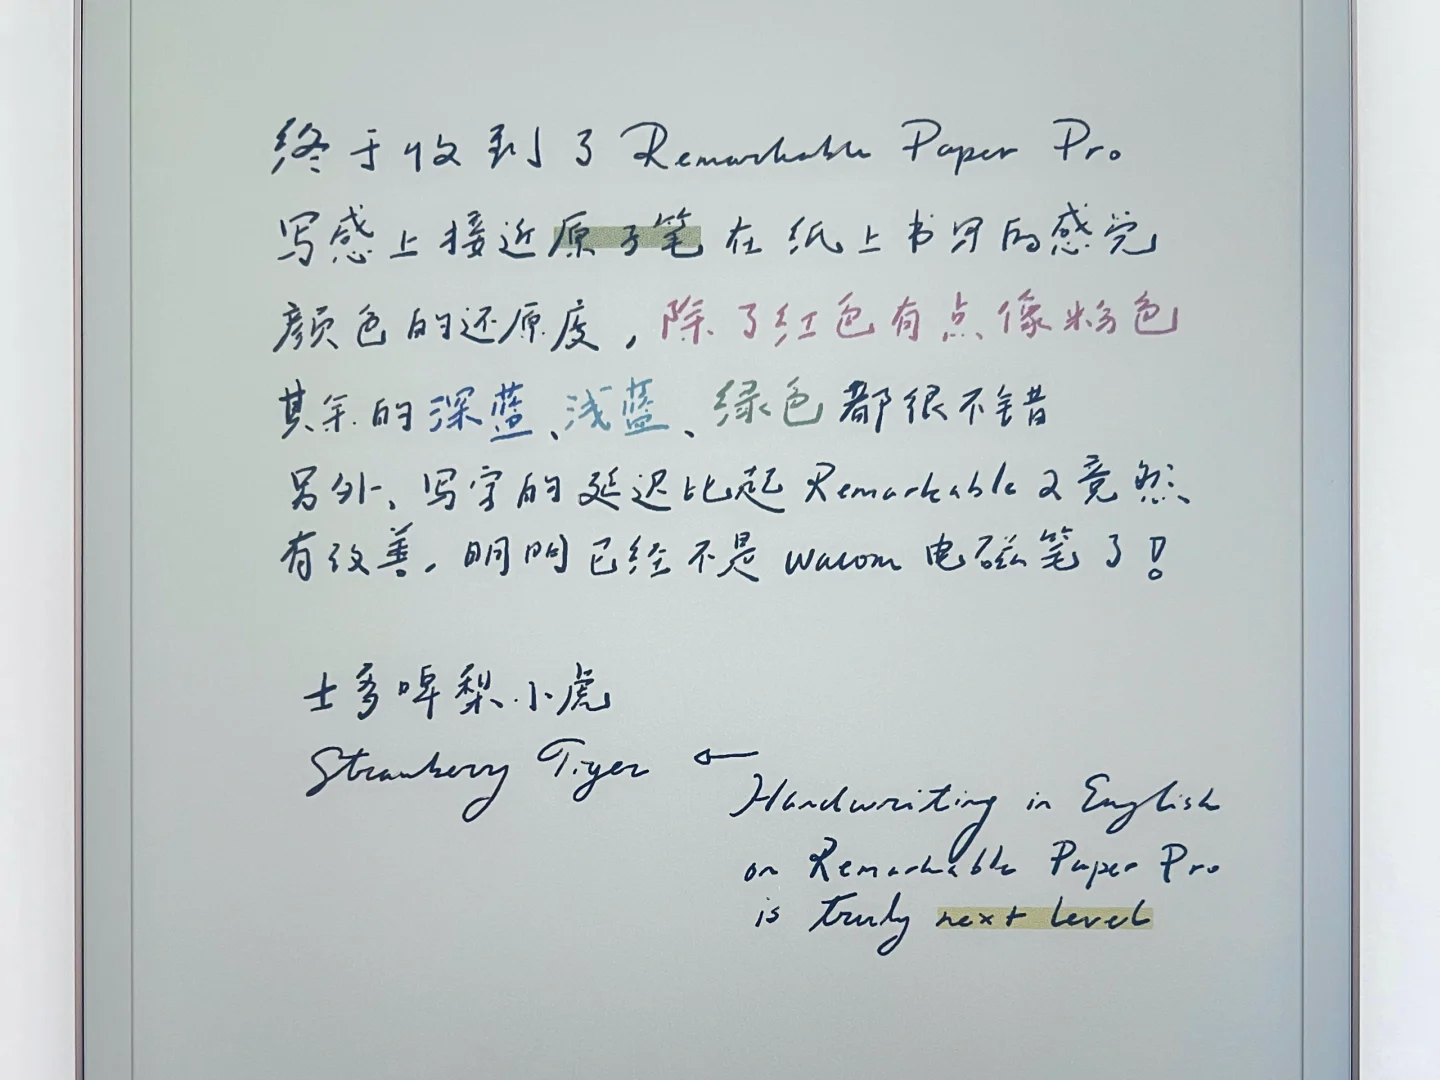 终于收到了 Remarkable Paper Pro
写感上接近原子笔在纸上书写的感觉
颜色的还原度，除了红色有点像粉色
其余的深蓝、浅蓝、绿色都很不错
另外、写字的延迟比起 Remarkable 2 竟然
有改善，明明已经不是 wacom 电磁笔了！
士多啤梨小虎
Strawberry Tiger ←
Handwriting in English
on Remarkable Paper Pro
is truly next level